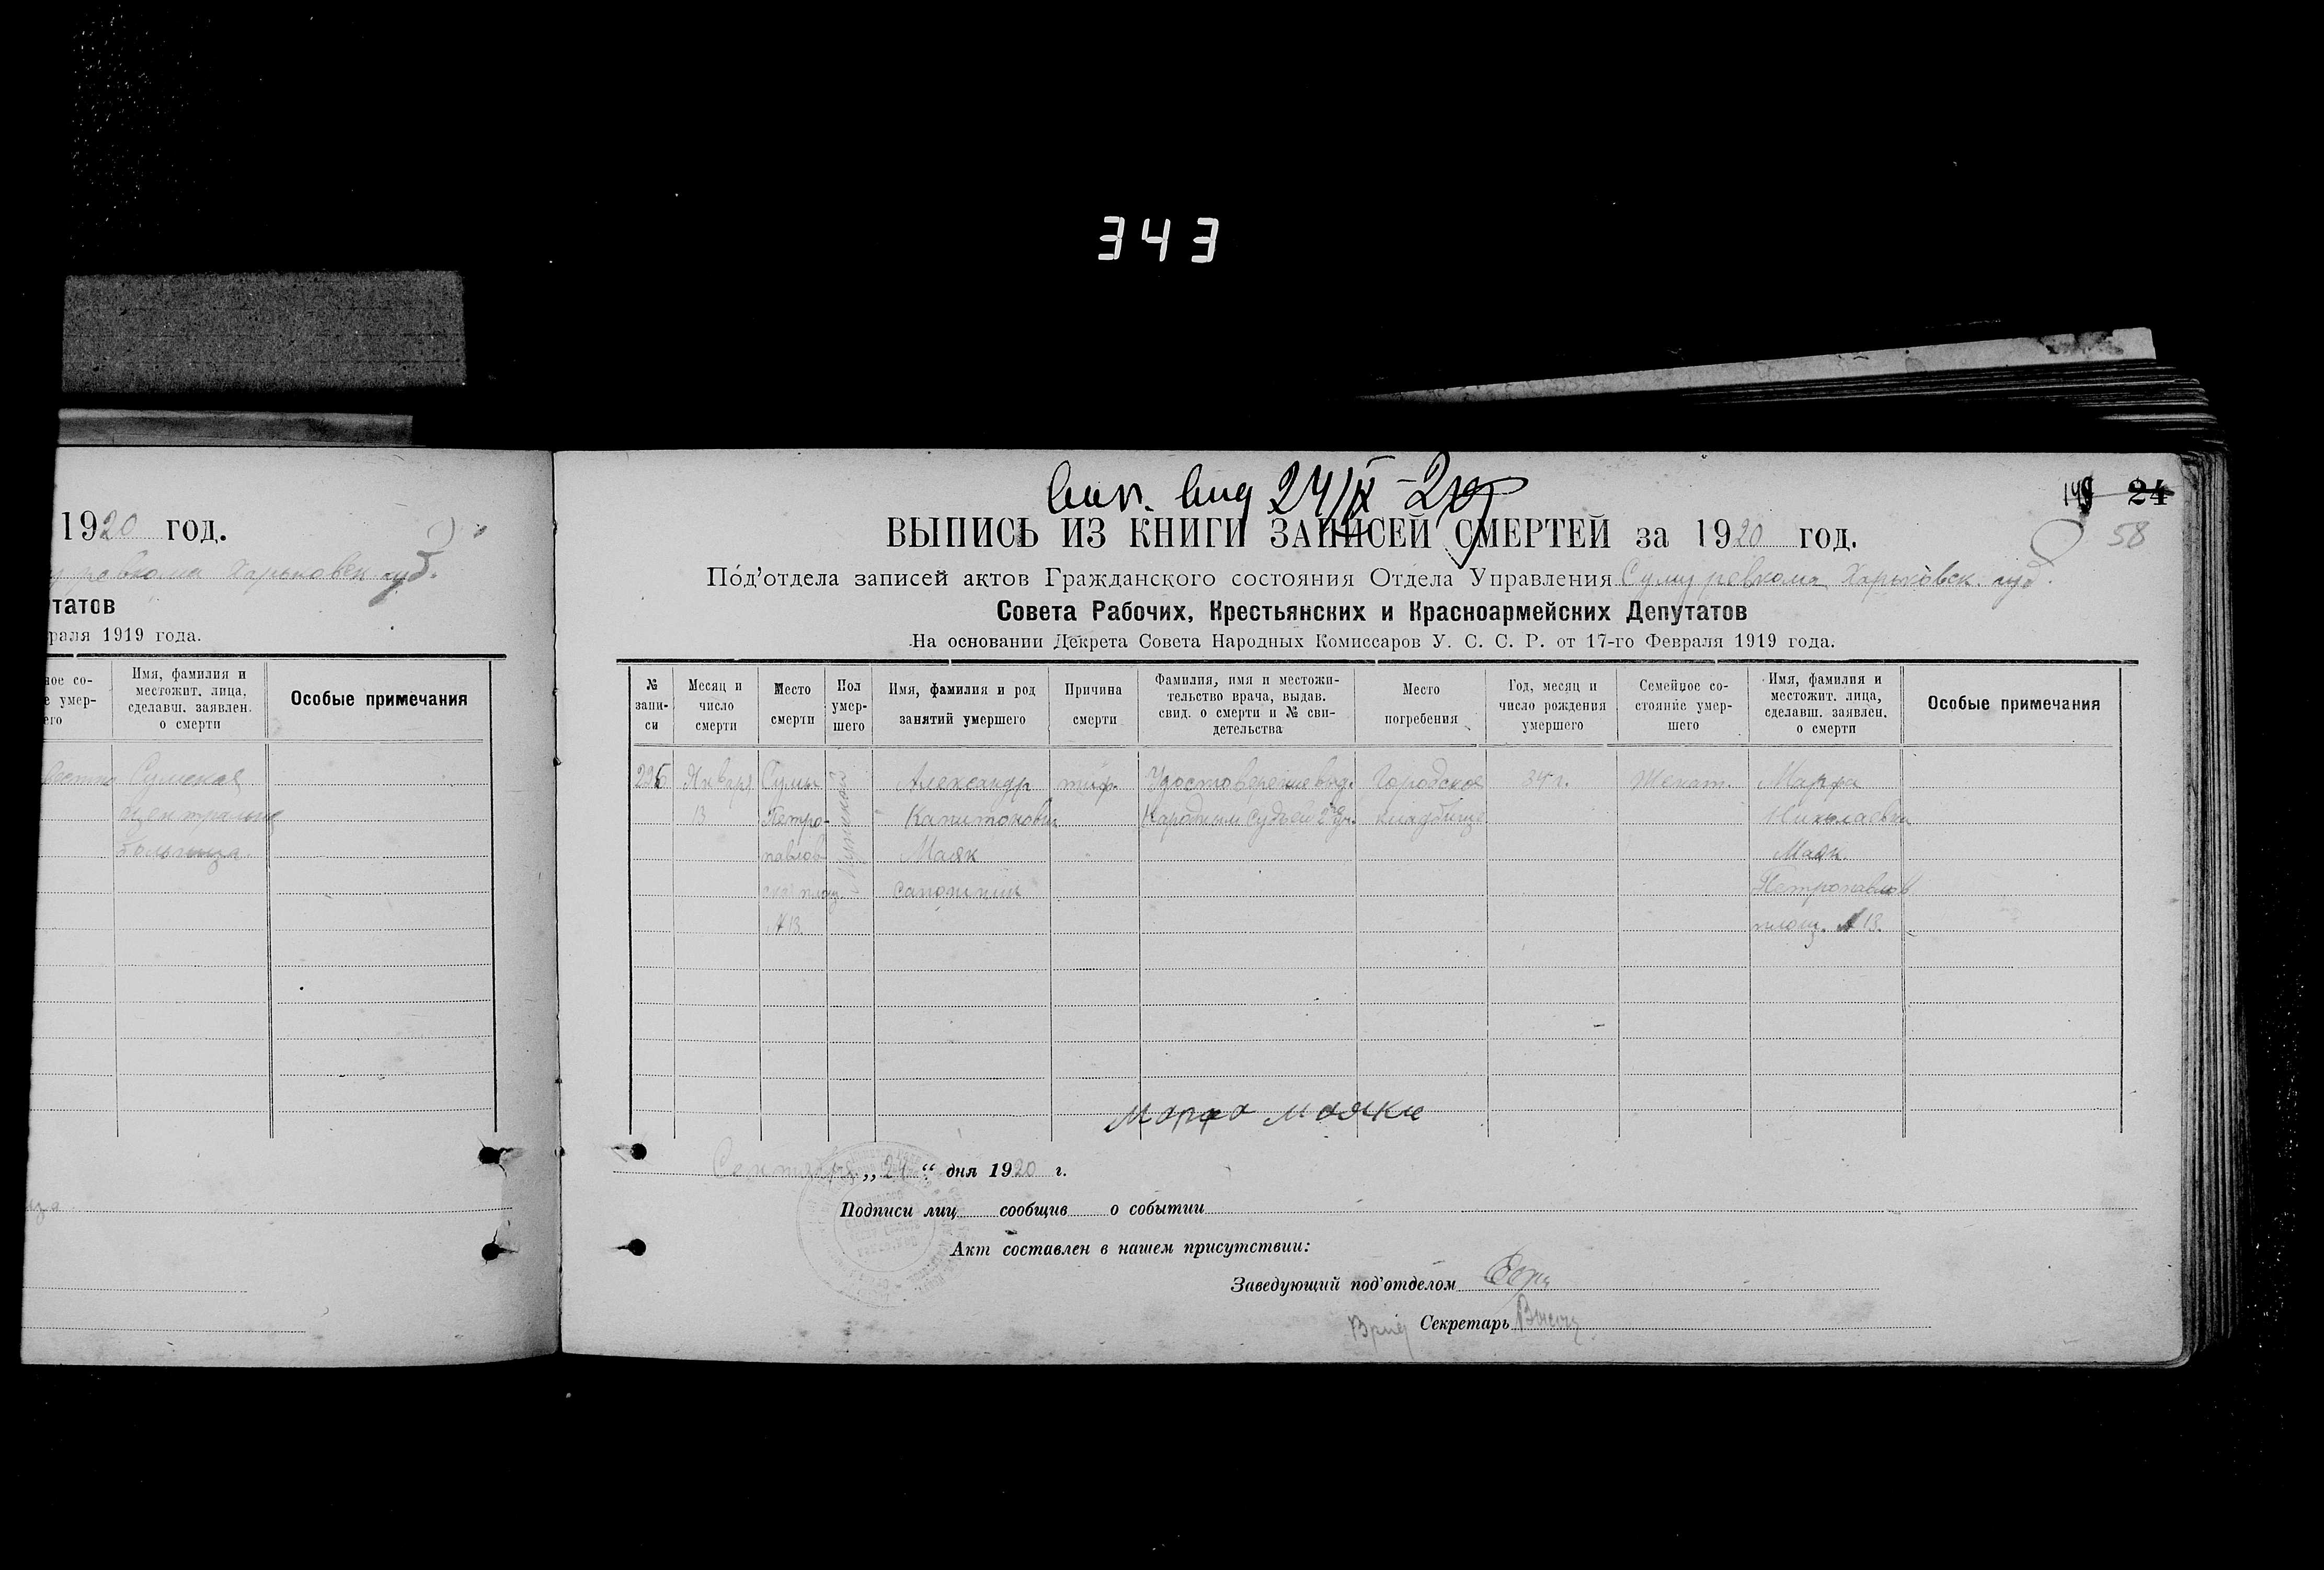 343
1920 год.
Харьковск губ.
татов
раля 1919 года.
ное со-
е умер-
его
Имя, фамилия и
местожит. лица,
сделавш. заявлен.
о смерти
Особые примечания
Сумская
центральна
больница.
24/IX-20
149 24
58
ВЫПИСЬ ИЗ КНИГИ ЗАПИСЕЙ СМЕРТЕЙ за 1920 год.
Под'отдела записей актов Гражданского состояния Отдела Управления Суму ревкома Харьковск. губ.
Совета Рабочих, Крестьянских и Красноармейских Депутатов
На основании Декрета Совета Народных Комиссаров У. С. С. Р. от 17-го Февраля 1919 года.
№
запи-
си
Месяц и
число
смерти
Место
смерти
Пол
умер-
шего
Имя, фамилия и род
занятий умершего
Причина
смерти
Фамилия, имя и местожи-
тельство врача, выдав.
свид. о смерти и № сви-
детельства
Место
погребения
Год, месяц и
число рождения
умершего
Семейное со-
стояние умер-
шего
Имя, фамилия и
местожит. лица,
сделавш. заявлен.
о смерти
Особые примечания
226
Января
13
Сумы
Петро-
павлов-
ская площ.
№ 13.
Мужской
Александр
Капитонович
Маяк
сапожник
тиф.
Удостоверение выд.
Народным Судьей 2го уч.
Городское
кладбище
34 г.
Женат.
Марфа
Николаевна
Маяк.
Петропавлов
площ. № 13.
Марфа маяки
Сентября „24“ дня 1920 г.
Подписи лиц сообщив о событии
Акт составлен в нашем присутствии:
Заведующий под'отделом
Врид Секретарь